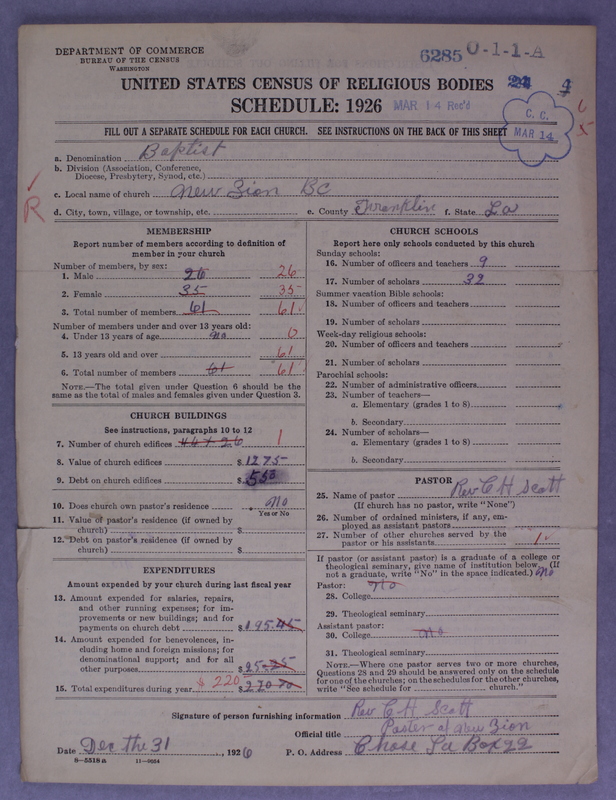 DEPARTMENT OF COMMERCE
BUREAU OF THE CENSUS
WASHINGTON
6285 0-1-1-A
UNITED STATES CENSUS OF RELIGIOUS BODIES
SCHEDULE: 1926
MAR 14 Rec'd
C. C.
MAR 14
FILL OUT A SEPARATE SCHEDULE FOR EACH CHURCH. SEE INSTRUCTIONS ON THE BACK OF THIS SHEET
R
a. Denomination Baptist
b. Division (Association, Conference, Diocese, Presbytery, Synod, etc.)
c. Local name of church New Zion BC
d. City, town, village, or township, etc. e. County Franklin f. State La
MEMBERSHIP
Report number of members according to definition of
member in your church
Number of members, by sex:
1. Male 26 26
2. Female 35 35
3. Total number of members 61 61
Number of members under and over 13 years old:
4. Under 13 years of age no 0
5. 13 years old and over 61
6. Total number of members 61 61
NOTE.—The total given under Question 6 should be
same as the total of males and females given under Question 3.
CHURCH BUILDINGS
See instructions, paragraphs 10 to 12
7. Number of church edifices 44 x 26 1
8. Value of church edifices $ 1275
9. Debt on church edifices $ 550
10. Does church own pastor's residence no
Yes or No
11. Value of pastor's residence (if owned by
church) $
12. Debt on pastor's residence (if owned by
church) $
EXPENDITURES
Amount expended by your church during last fiscal year
13. Amount expended for salaries, repairs,
and other running expenses; for im-
provements or new buildings; and for
payments on church debt $ 195.45
14. Amount expended for benevolences, in-
cluding home and foreign missions; for
denominational support; and for all
other purposes $ 25.25
15. Total expenditures during year $ 220 $ 270 70
CHURCH SCHOOLS
Report here only schools conducted by this church
Sunday schools:
16. Number of officers and teachers 9
17. Number of scholars 32
Summer vacation Bible schools:
18. Number of officers and teachers
19. Number of scholars
Week-day religious schools:
20. Number of officers and teachers
21. Number of scholars
Parochial schools:
22. Number of administrative officers
23. Number of teachers—
a. Elementary (grades 1 to 8)
b. Secondary
24. Number of scholars—
a. Elementary (grades 1 to 8)
b. Secondary
PASTOR
25. Name of pastor Rev C H Scott
(If church has no pastor, write "None")
26. Number of ordained ministers, if any, em-
ployed as assistant pastors
27. Number of other churches served by the
pastor or his assistants 1
If pastor (or assistant pastor) is a graduate of a college or
theological seminary, give name of institution below. (If
not a graduate, write "No" in the space indicated.) no
Pastor: No
28. College
29. Theological seminary
Assistant pastor:
30. College no
31. Theological seminary
NOTE.—Where one pastor serves two or more churches,
Questions 28 and 29 should be answered only on the schedule
for one of the churches; on the schedules for the other churches,
write "See schedule for church."
Signature of person furnishing information Rev C H Scott
Official title Paster of New Zion
Date Dec the 31, 1926 P. O. Address Chase La Box 22
8—5518 a 11—9684